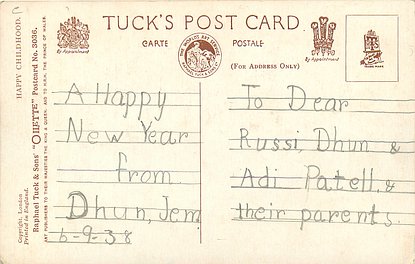 C
TUCK'S POST CARD
CARTE POSTALE
(FOR ADDRESS ONLY)
By Appointment
By Appointment
THE WORLD'S ART SERVICE
RAPHAEL TUCK & SONS LTD
TRADE MARK
HAPPY CHILDHOOD.
Raphael Tuck & Sons' "OILETTE" Postcard No. 3036.
ART PUBLISHERS TO THEIR MAJESTIES THE KING & QUEEN, AND TO H.R.H. THE PRINCE OF WALES.
Copyright. London
Printed in England.
A Happy
New Year
from
Dhun, Jem
6-9-38
To Dear
Russi, Dhun &
Adi Patell, &
their parents.